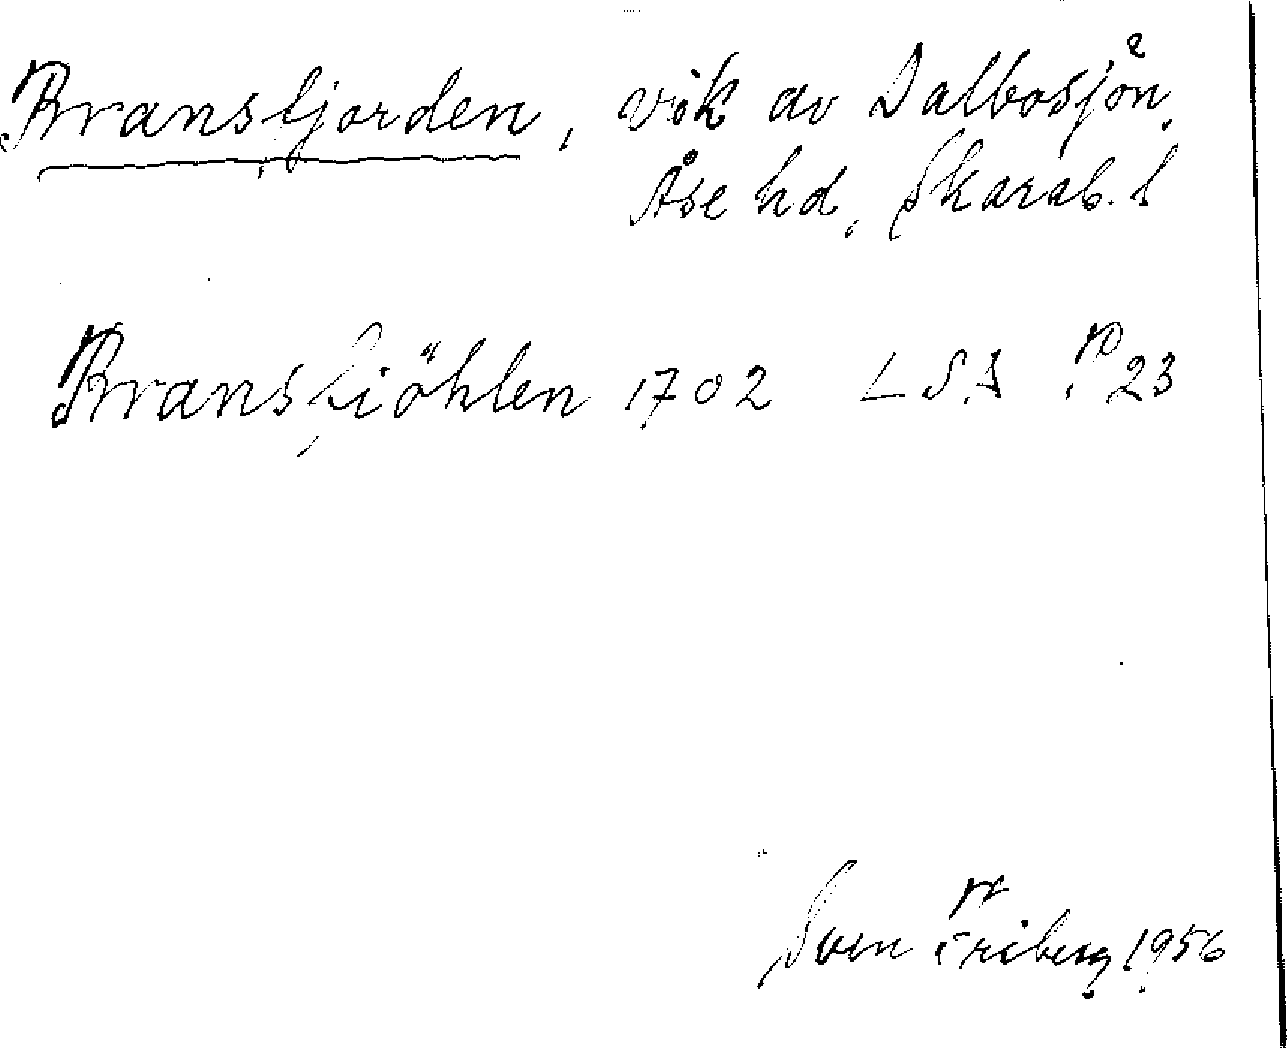 Bransfjorden, vik av Dalbosjön,
Åse hd, Skarab. l
Bransfiöhlen 1702 LSA P 23
Sven Friberg 1956